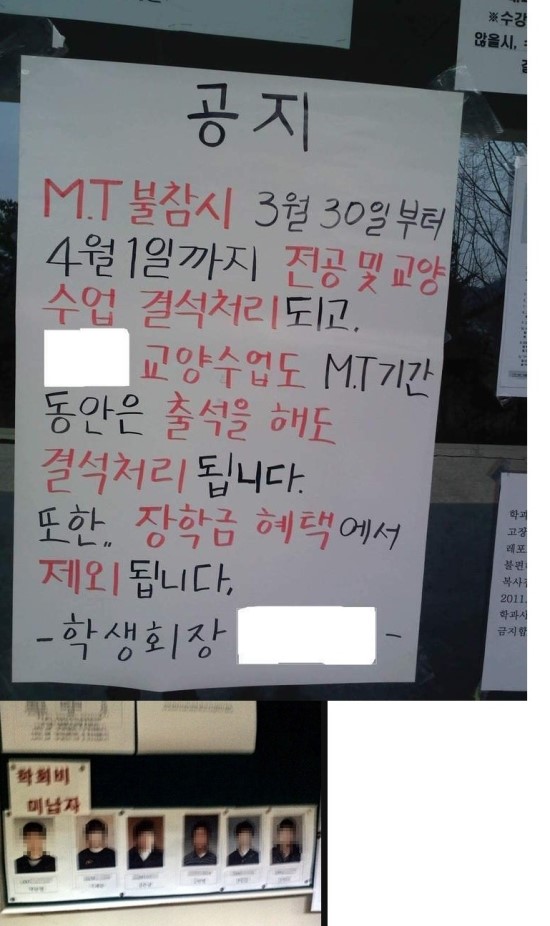 ※수강
않을시,
공지
M.T 불참시 3월 30일부터
4월 1일까지 전공 및 교양
수업 결석처리되고.
교양수업도 M.T기간
동안은 출석을 해도
결석처리 됩니다.
또한,, 장학금 혜택에서
제외됩니다,
-학생회장 -
학과
고장
레포
불편
복사
2011.
학과사
금지함
학회비
미납자